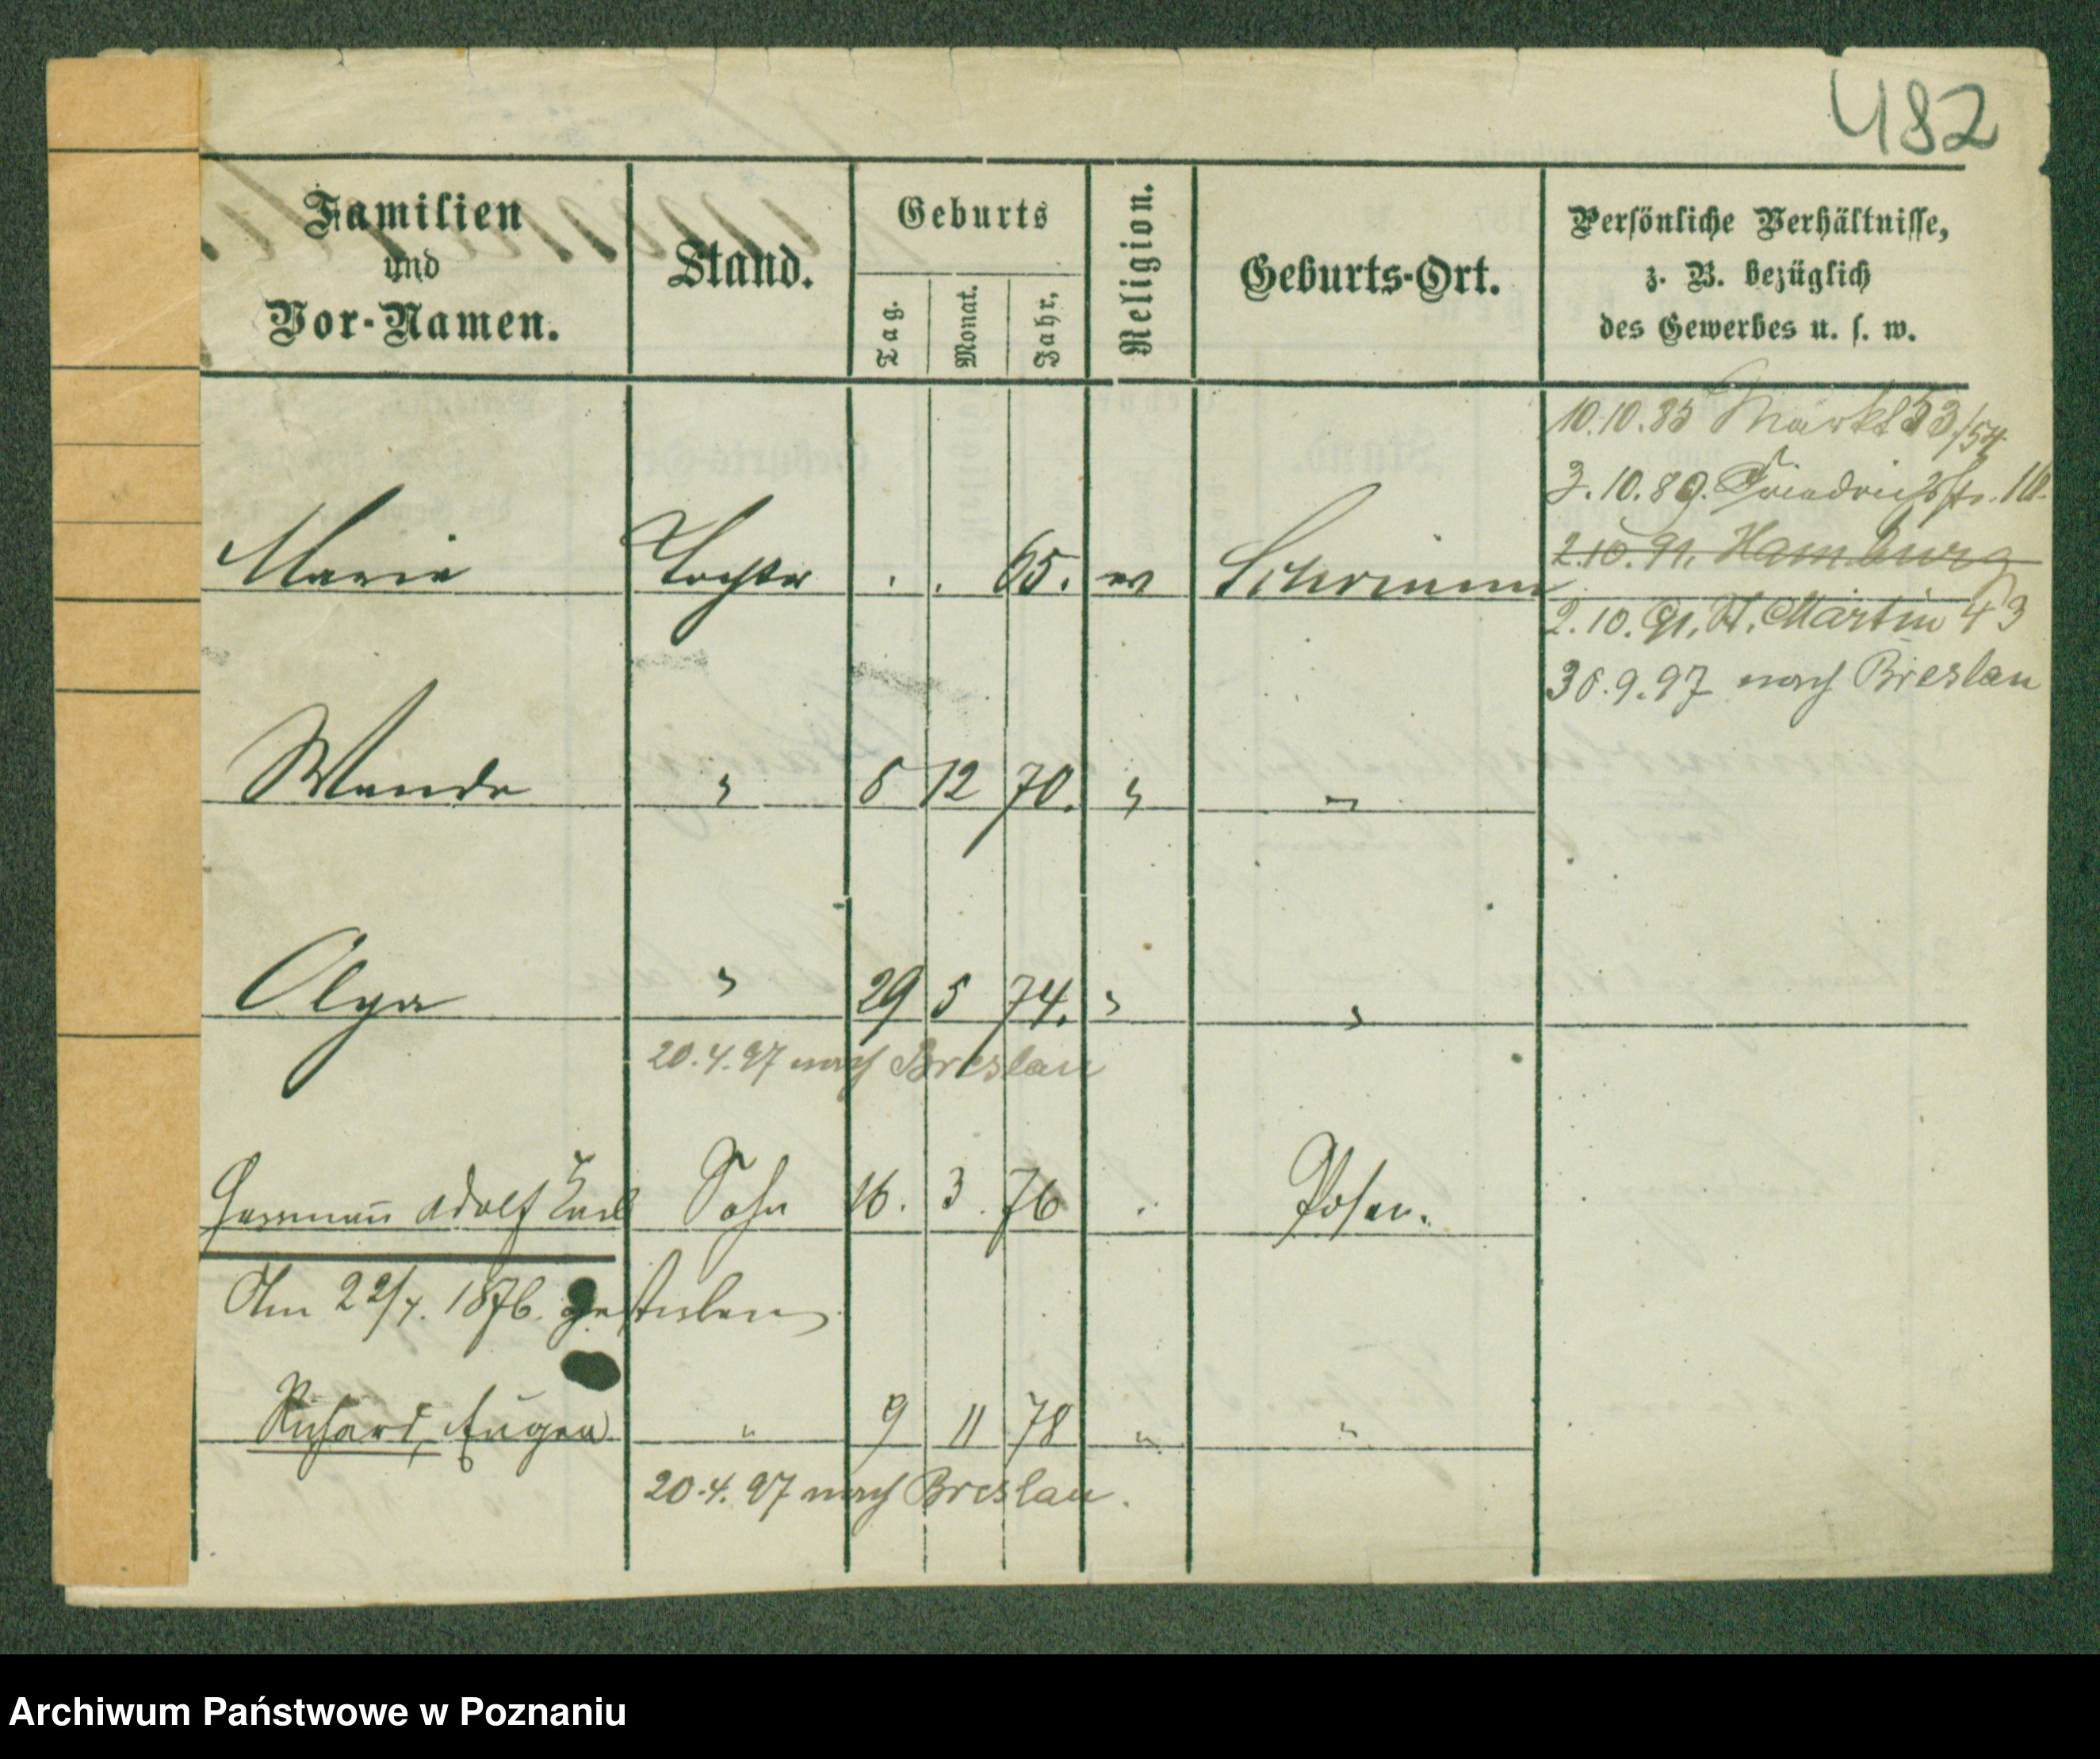 482
Familien
und
Vor-Namen.
Stand.
Geburts
Tag.
Monat.
Jahr.
Religion.
Geburts-Ort.
Persönliche Verhältnisse,
z. B. bezüglich
des Gewerbes u. s. w.
10.10.85 Markt 53/54
3.10.89. Friedrichstr.
2.10.91. Hamburg
Marie Tochter . . 65. Schrimm
2.10.91. St. Martin 43
30.9.97 nach Breslau
Wanda " 5 12 70. " "
Olga " 29 5 74. " "
20.4.97 nach Breslau
Hermann Adolf Carl Sohn 16. 3. 76 . Posen.
Am 22/7. 1876. gestorben
Richard, Eugen " 9 11 78 " "
20.4.97 nach Breslau.
Archiwum Państwowe w Poznaniu